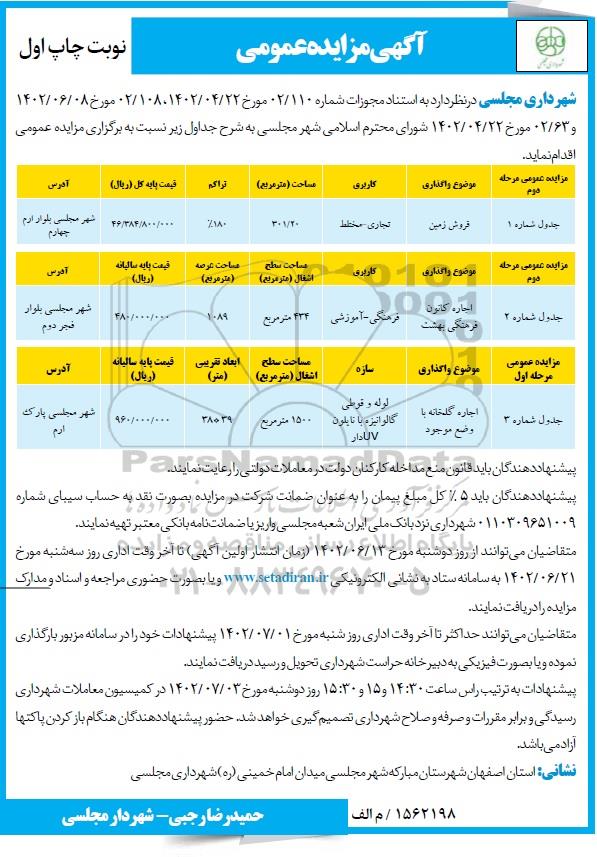 آگهی مزایده عمومی
نوبت چاپ اول
شهرداری مجلسی
شهرداری مجلسی درنظر دارد به استناد مجوزات شماره ۰۲/۱۱۰ مورخ ۱۴۰۲/۰۴/۲۲، ۰۲/۱۰۸ مورخ ۱۴۰۲/۰۶/۰۸
و ۰۲/۶۳ مورخ ۱۴۰۲/۰۴/۲۲ شورای محترم اسلامی شهر مجلسی به شرح جداول زیر نسبت به برگزاری مزایده عمومی
اقدام نماید.
مزایده عمومی مرحله دوم	موضوع واگذاری	کاربری	مساحت (مترمربع)	تراکم	قیمت پایه کل (ریال)	آدرس
جدول شماره ۱	فروش زمین	تجاری-مختلط	۳۰۱/۲۰	۱۸۰٪	۴۶/۳۸۴/۸۰۰/۰۰۰	شهر مجلسی بلوار ارم چهارم
مزایده عمومی مرحله دوم	موضوع واگذاری	کاربری	مساحت سطح اشغال (مترمربع)	مساحت عرصه (مترمربع)	قیمت پایه سالیانه (ریال)	آدرس
جدول شماره ۲	اجاره کانون فرهنگی بهشت	فرهنگی-آموزشی	۴۳۴ مترمربع	۱۰۸۹	۴۸۰/۰۰۰/۰۰۰	شهر مجلسی بلوار فجر دوم
مزایده عمومی مرحله اول	موضوع واگذاری	سازه	مساحت سطح اشغال (مترمربع)	ابعاد تقریبی (متر)	قیمت پایه سالیانه (ریال)	آدرس
جدول شماره ۳	اجاره گلخانه با وضع موجود	لوله و قوطی گالوانیزه با نایلون UVدار	۱۵۰۰ مترمربع	۳۹*۳۸	۹۶۰/۰۰۰/۰۰۰	شهر مجلسی پارک ارم
پیشنهاددهندگان باید قانون منع مداخله کارکنان دولت در معاملات دولتی را رعایت نمایند.
پیشنهاددهندگان باید ۵ ٪ کل مبلغ پیمان را به عنوان ضمانت شرکت در مزایده بصورت نقد به حساب سیبای شماره
۰۱۱۰۳۰۹۶۵۱۰۰۹ شهرداری نزد بانک ملی ایران شعبه مجلسی واریز یا ضمانت نامه بانکی معتبر تهیه نمایند.
متقاضیان می‌توانند از روز دوشنبه مورخ ۱۴۰۲/۰۶/۱۳ (زمان انتشار اولین آگهی) تا آخر وقت اداری روز سه‌شنبه مورخ
۱۴۰۲/۰۶/۲۱ به سامانه ستاد به نشانی الکترونیکی www.setadiran.ir و یا بصورت حضوری مراجعه و اسناد و مدارک
مزایده را دریافت نمایند.
متقاضیان می‌توانند حداکثر تا آخر وقت اداری روز شنبه مورخ ۱۴۰۲/۰۷/۰۱ پیشنهادات خود را در سامانه مزبور بارگذاری
نموده و یا بصورت فیزیکی به دبیرخانه حراست شهرداری تحویل و رسید دریافت نمایند.
پیشنهادات به ترتیب راس ساعت ۱۴:۳۰ و ۱۵ و ۱۵:۳۰ روز دوشنبه مورخ ۱۴۰۲/۰۷/۰۳ در کمیسیون معاملات شهرداری
رسیدگی و برابر مقررات و صرفه و صلاح شهرداری تصمیم گیری خواهد شد. حضور پیشنهاددهندگان هنگام باز کردن پاکتها
آزاد می‌باشد.
نشانی: استان اصفهان شهرستان مبارکه شهر مجلسی میدان امام خمینی (ره) شهرداری مجلسی
۱۵۶۲۱۹۸ / م الف
حمیدرضا رجبی - شهردار مجلسی
ParsNamadData
۰۲۱-۸۸۳۴۹۶۷۰-۵